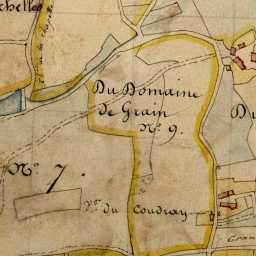 chelles
Du Domaine
de Grain
N.º 9.
Du
N.º 7.
du Coudray
Gran